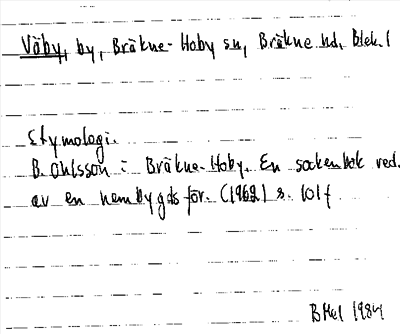 Väby, by, Bräkne-Hoby sn, Bräkne hd, Blek. l
Etymologi.
B. Ohlsson i Bräkne-Hoby. En sockenbok red.
av en hembygdsför. (1962) s. 101 f.
BHel 1984